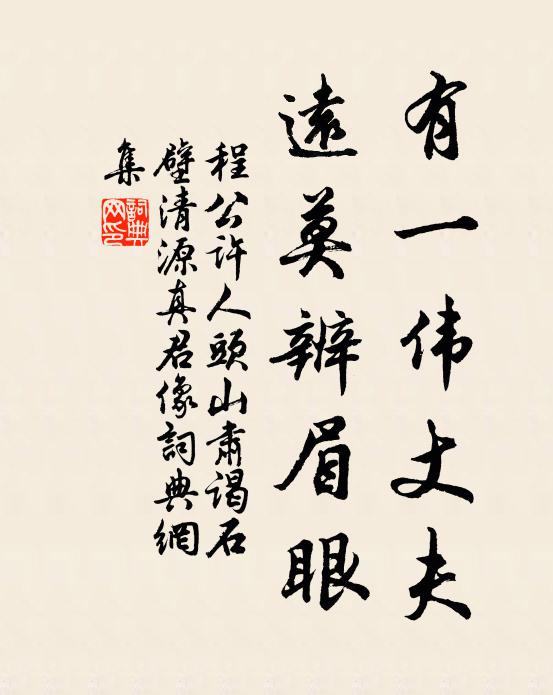 有一伟丈夫
遠莫辨眉眼
程公许人頭山肃謁石
壁清源真君像詞典網
集
詞典
网印